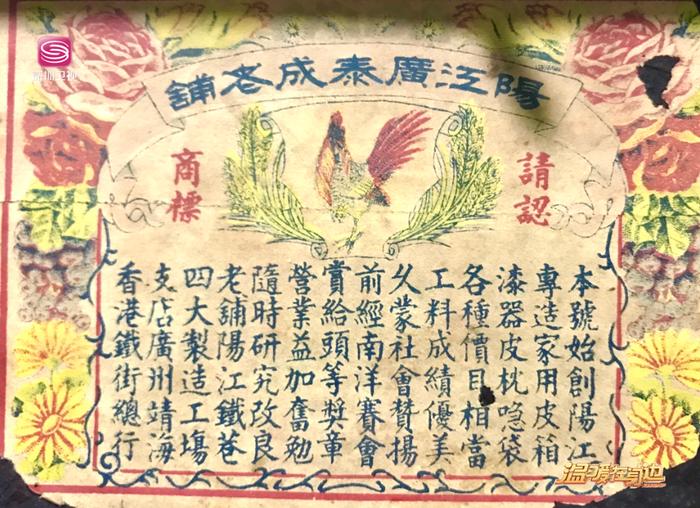 陽江廣泰成老舖
請認
商標
本號始創陽江
專造家用皮箱
漆器皮枕喼袋
各種價目相當
工料成績優美
久蒙社會贊揚
前經南洋賽會
賞給頭等獎章
營業益加奮勉
隨時研究改良
老舖陽江鐵巷
四大製造工場
支店廣州靖海
香港鐵街總行
深圳卫视
温暖在身边